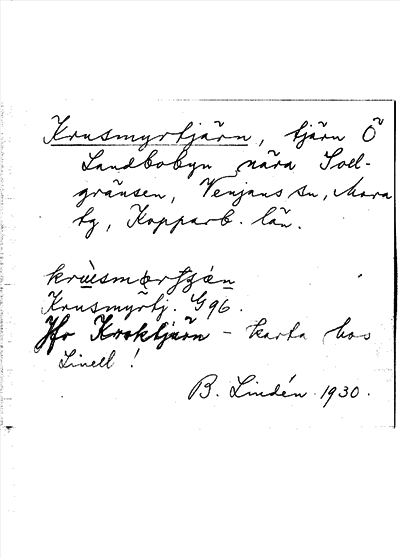 Krusmyrtjärn, tjärn Ö
Landbobyn nära Soll-
gränsen, Venjans sn, Mora
tg, Kopparb. län.
Krusmyrtj. G96.
Jfr Kroktjärn - karta hos
Linell!
B. Lindén 1930.